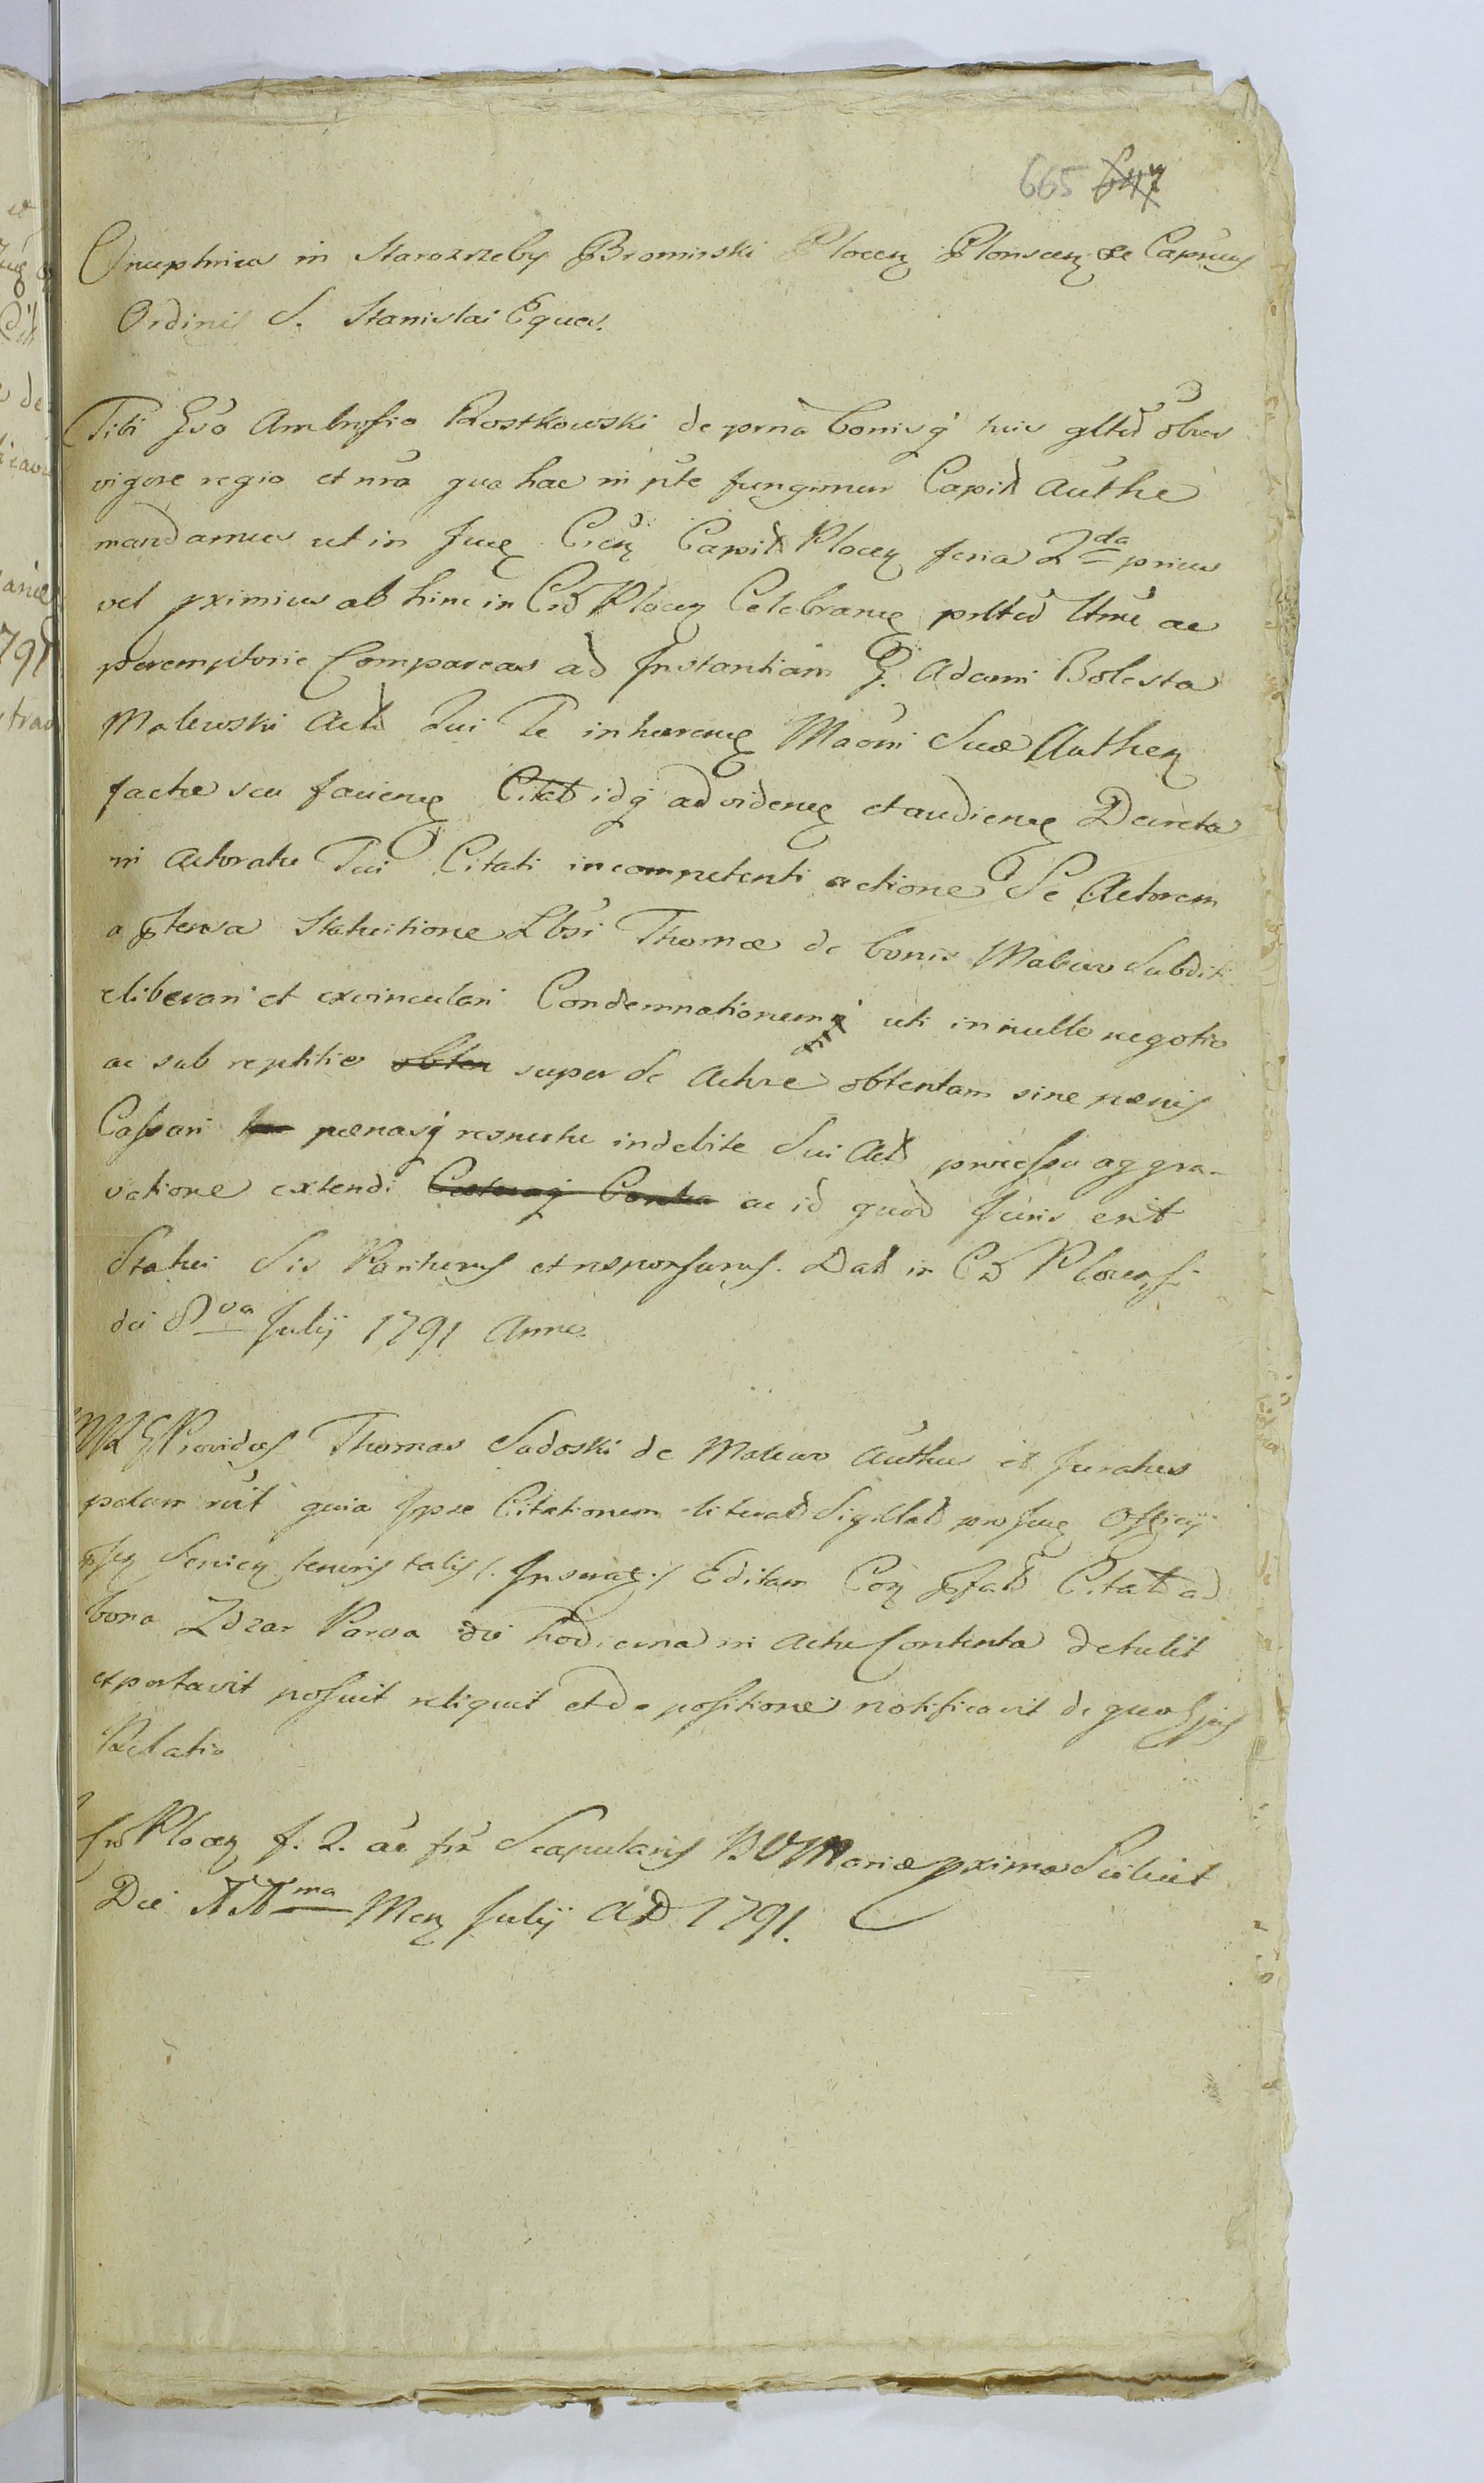 665 647
Onuphrius in Starozrzeby Bromirski Plocen Plonscen &c Capnus
Ordinis S. Stanislai Eques.
Tibi Gso Ambrosio Rostkowski de prna bonisq tuis gltr obus
vigore regio et nra qua hac in pte fungimur Capit Authe
mandamus ut in Juc Cren Capit Plocen feria 2da prius
vel pximius ab hinc in Cas Plocen Celebranc prltr ltme ac
peremptorie Compareas ad Instantiam G. Adami Bolesta
Malewski Act Qui Te inhaerenc Maoni Suae Authen
factae seu faciene Citat idq ad videnc et audienc Decreta
in Actoratu Tui Citati incompetenti actione Se Actorem
a ptensa Statuitione Lbsi Thomae de bonis Malewo Subditi
eliberari et exvinculari Condemnationemq uti in nullo negotio
ac sub reptitie obten super Se Actore obtentam sine poenis
Cassari poenasq respectu indebite Sui Act processu aggra-
vatione extendi Caeteraq Contra ac id quod Juris erit
Statui Sis Pariturus et responsurus. Dat in CS Plocensi
die 8va Julij 1791 Anno.
Providus Thomas Sadoski de Malewo Authus et Juratus
palam rcit quia Ipse Citationem literat Sigillat pro Juc Officij
ptis Servien tenoris talis /. Inserat ./ Editam Con pfat Citat ad
bona Zdzar Parva die hodierna in Actu Contenta detulit
et portavit posuit reliquit et de positione notificavit de quo Ejus
Relatio
Plocen f. 2. ae fta Scapularis B V Mariae pxima Scilicet
Die XIma Men Julij AD 1791.